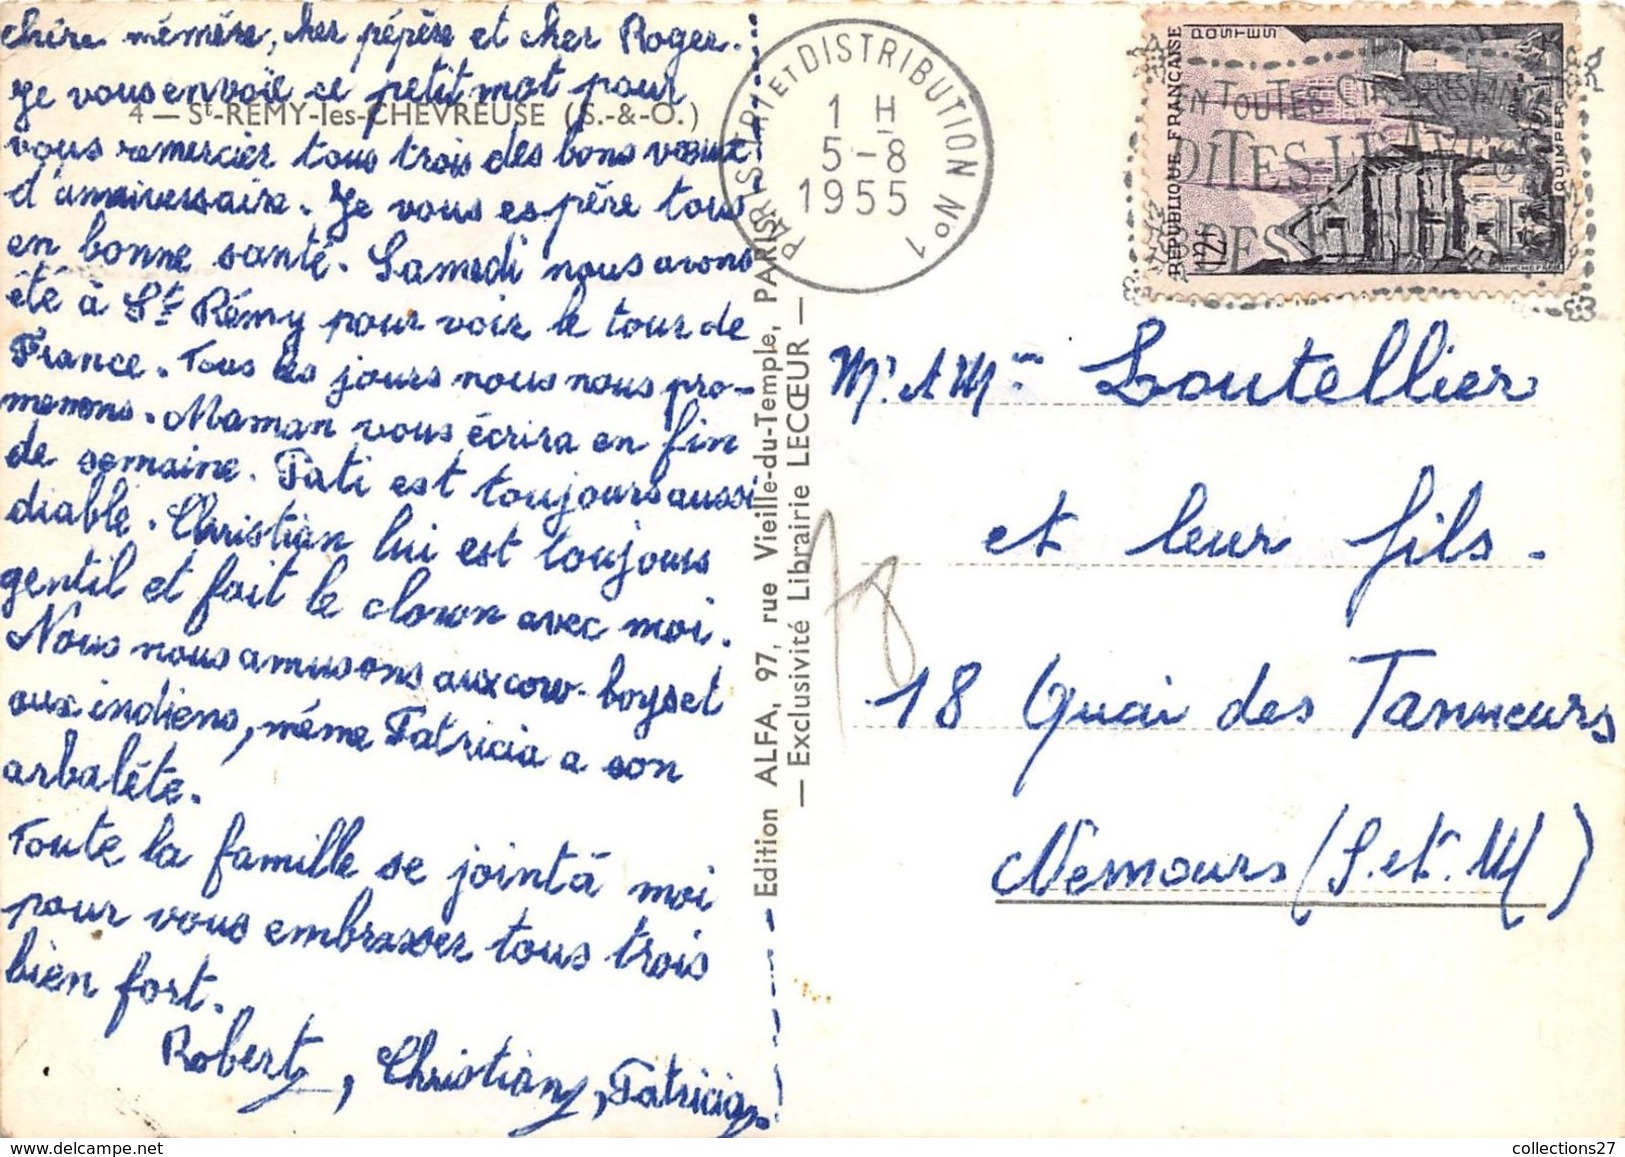 chère mémère, cher pépère et cher Roger.
Je vous envoie ce petit mot pour
4 — St-REMY-les-CHEVREUSE (S.-&-O.)
vous remercier tous trois des bons vœux
d'anniversaire. Je vous espère tous
en bonne santé. Samedi nous avons
été à St Rémy pour voir le tour de
France. Tous les jours nous nous pro-
menons. Maman vous écrira en fin
de semaine. Pati est toujours aussi
diable. Christian lui est toujours
gentil et fait le clown avec moi.
Nous nous amusons aux cow-boys et
aux indiens, même Patricia a son
arbalète.
Toute la famille se joint à moi
pour vous embrasser tous trois
bien fort.
Robert, Christian, Patricia.
Edition ALFA, 97, rue Vieille-du-Temple, PARIS
— Exclusivité Librairie LECŒUR —
PARIS TRI ET DISTRIBUTION N° 1
1 H
5-8
1955
REPUBLIQUE FRANÇAISE
POSTES
12f
QUIMPER
EN TOUTES
DITES LE AVEC
DES FLEURS
Mr & Mme Loutellier
et leur fils.
18 Quai des Tanneurs
Nemours (S. et. M)
78
collections27